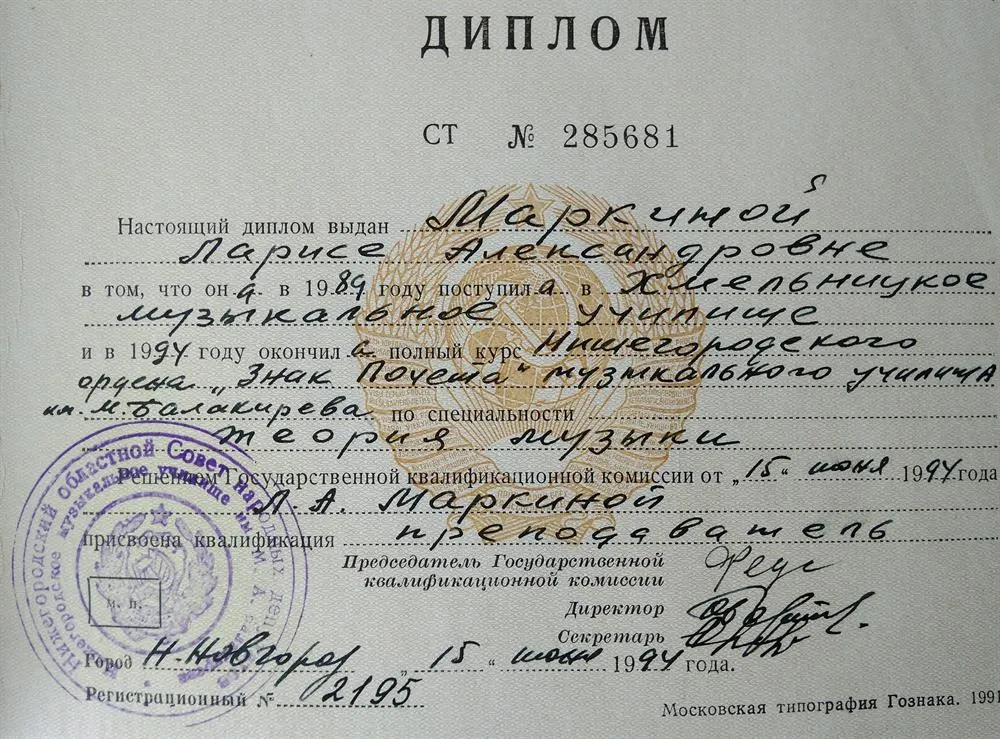 ДИПЛОМ
СТ № 285681
Настоящий диплом выдан Маркиной
Ларисе Александровне
в том, что она в 1989 году поступила в Хмельницкое
музыкальное училище
и в 1994 году окончила полный курс Нижегородского
ордена „Знак Почета" музыкального училища
им. М. Балакирева по специальности
теория музыки
Решением Государственной квалификационной комиссии от „15" июня 1994 года
Л. А. Маркиной
присвоена квалификация преподаватель
Председатель Государственной
квалификационной комиссии
Директор
Секретарь
Город Н-Новгород „15" июня 1994 года.
Регистрационный № 2195
Московская типография Гознака. 1991
Нижегородский областной Совет народных
музыкальное училище им. М. А.
м. п.